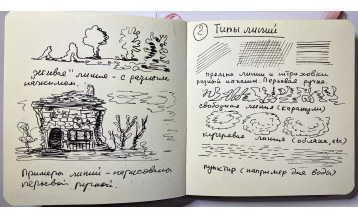 "живая" линия - с разным
нажимом.
Примеры линий - нарисованы
перьевой ручкой.
2 Типы линий
прямые линии и штриховки
разный нажим. Перьевая ручка.
свободная линия (каракули)
кучерявая линия (облака, etc)
пунктир (например для воды)